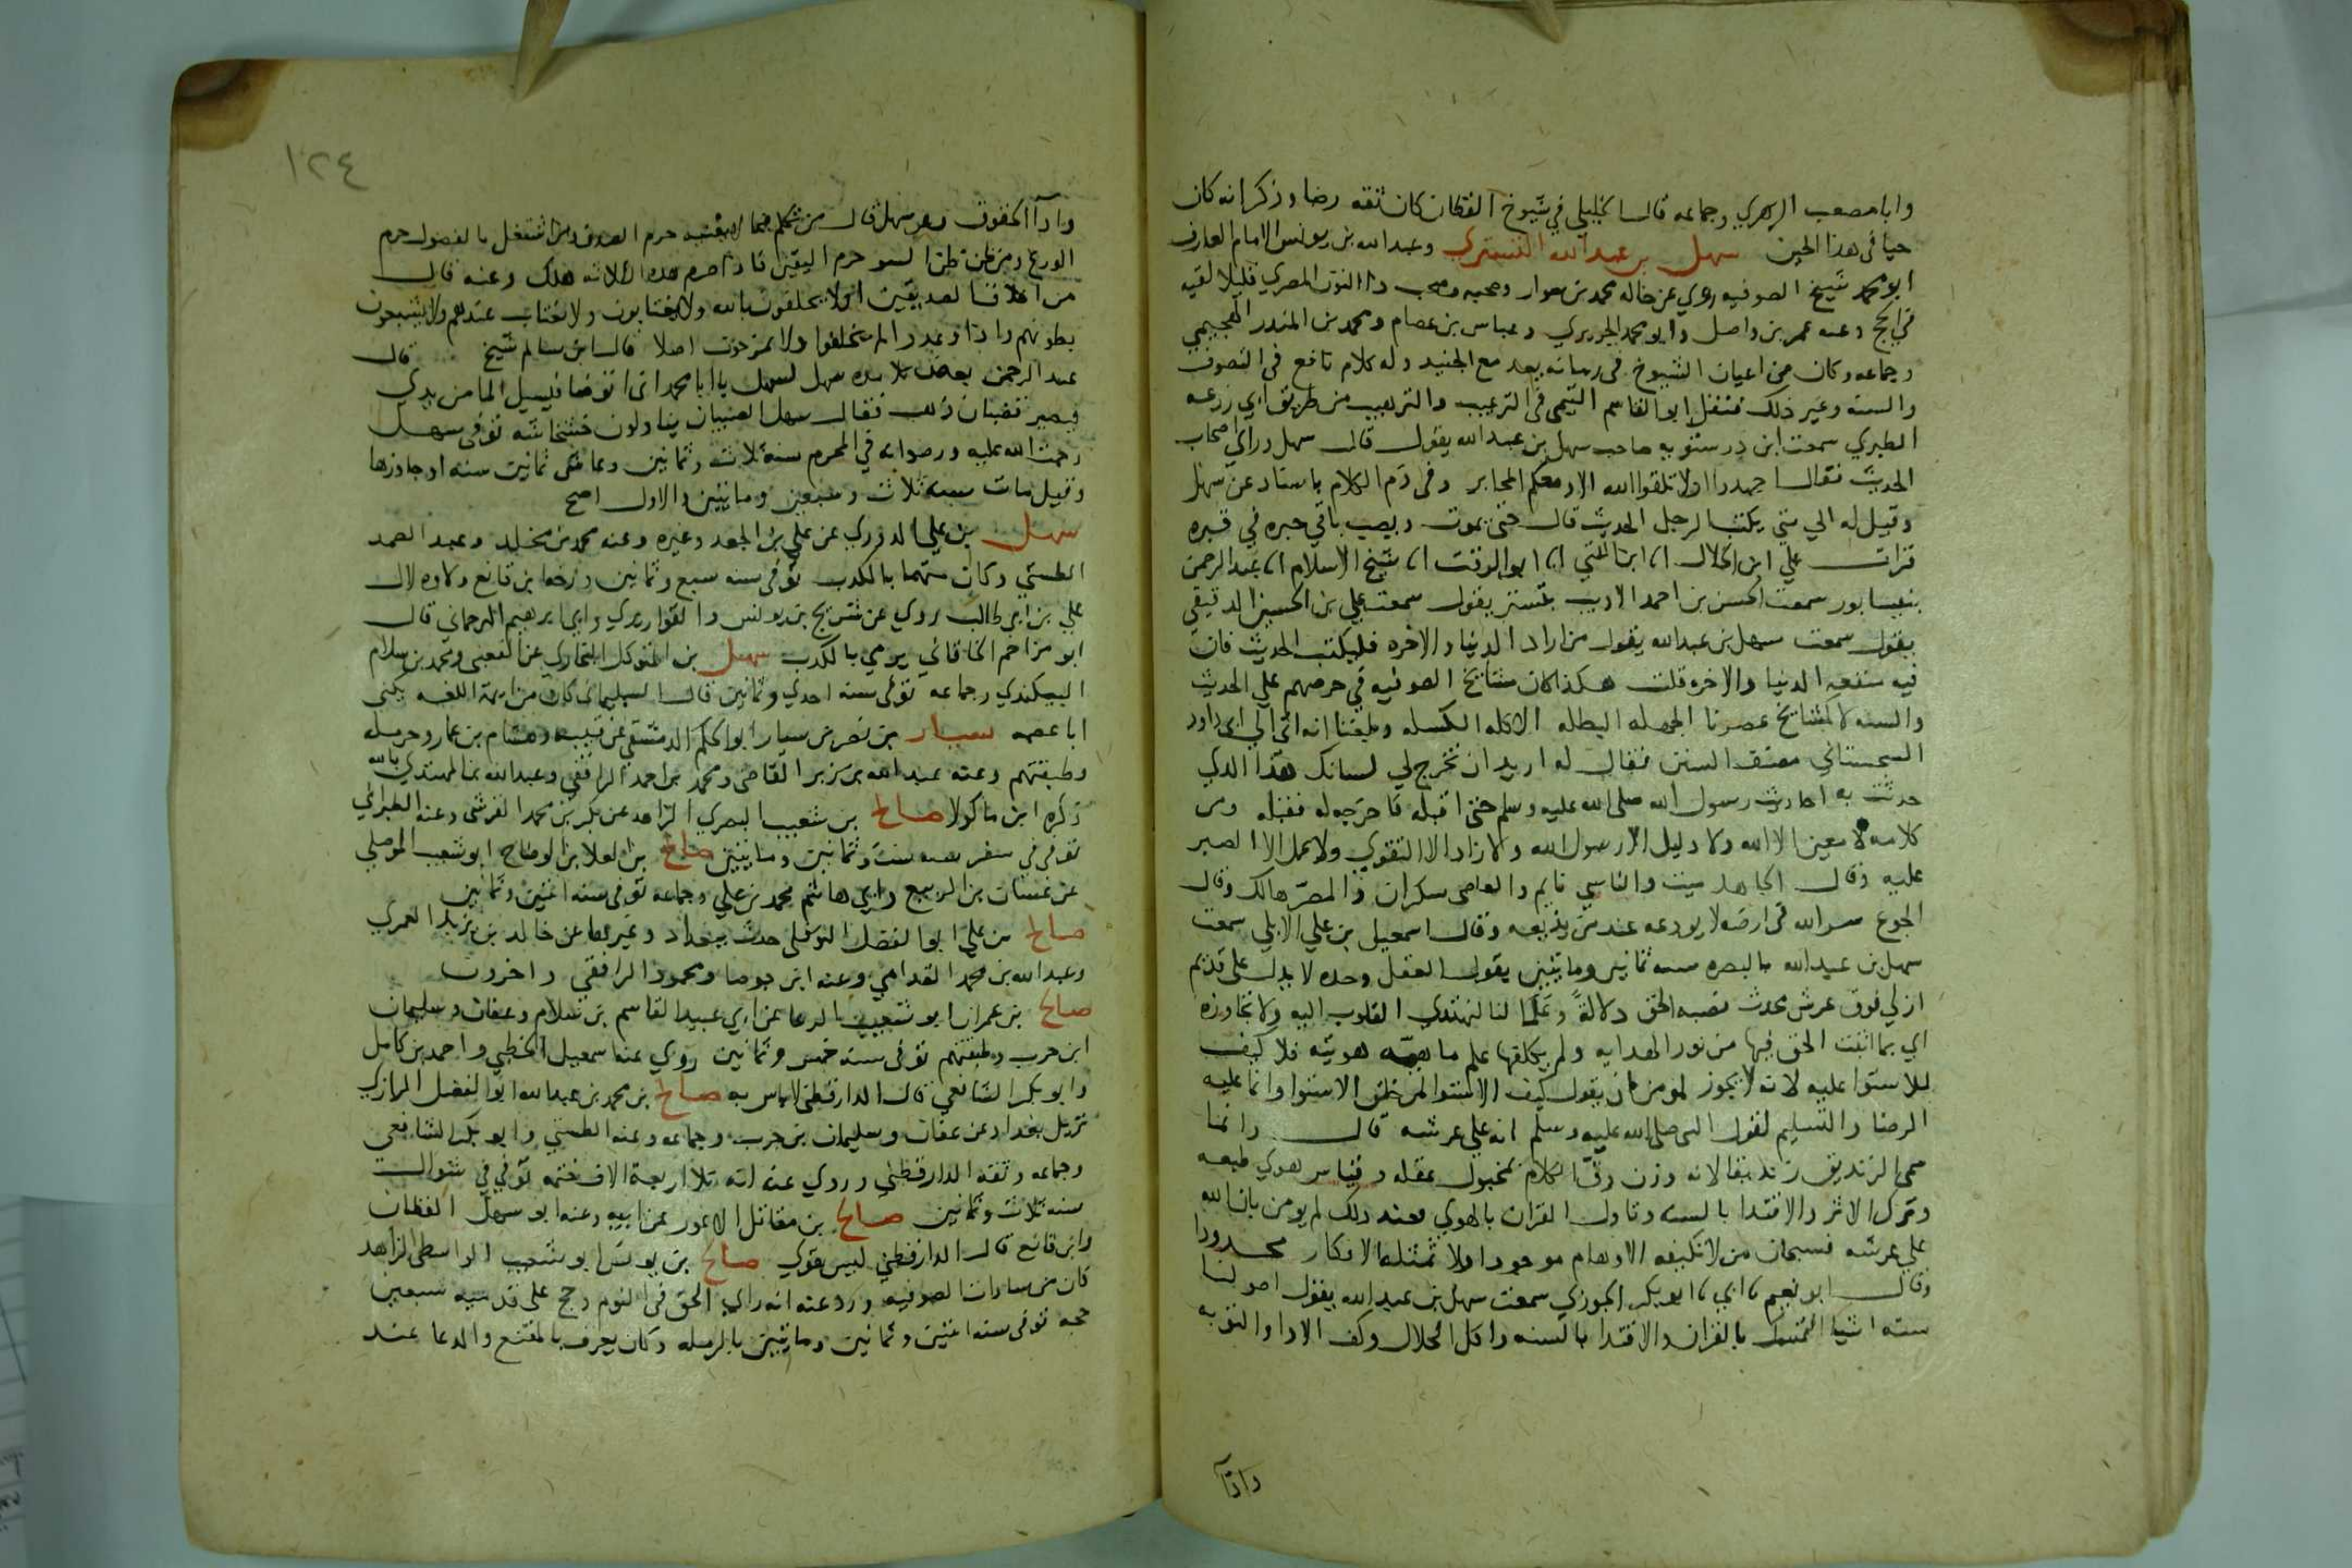 وابا مصعب الزهري وجماعه قال الخليلي في شيوخ القطان كان ثقه رضا وذكر انه كان
حيا في هذا الحين سهل بن عبد الله التستري وعبد الله بن يونس الامام العارف
ابو محمد شيخ الصوفيه روي عن خاله محمد بن سوار وصحبه وصحب ذا النون المصري قليلا لقيه
في الحج وعنه عمر بن واصل وابو محمد الجريري وعباس بن عصام ومحمد بن المنذر الهجيمي
وجماعه وكان من اعيان الشيوخ في زمانه يعد مع الجنيد وله كلام نافع في التصوف
والسنه وغير ذلك فنقل ابو القاسم التيمي في الترغيب والترهيب من طريق ابي زرعه
الطبري سمعت ابن درستويه صاحب سهل بن عبد الله يقول قال سهل وراي اصحاب
الحديث فقال اجهدوا ان لا تلقوا الله الا ومعكم المحابر وفي ذم الكلام باسناد عن سهل
وقيل له الي متي يكتب الرجل الحديث قال حتى يموت ويصب باقي حبره في قبره
قرات علي ابن الخلال انا ابن اللتي انا ابو الوقت انا شيخ الاسلام انا عبد الرحمن
بنيسابور سمعت الحسن بن احمد الاديب بتستر يقول سمعت علي بن الحسين الدقيقي
يقول سمعت سهل بن عبد الله يقول من اراد الدنيا والاخره فليكتب الحديث فان
فيه منفعه الدنيا والاخره قلت هكذا كان مشايخ الصوفيه في حرصهم علي الحديث
والسنه لا كمشايخ عصرنا الجهله البطله الاكله الكسله وبلغنا انه اتى الي ابي داود
السجستاني مصنف السنن فقال له اريد ان تخرج لي لسانك هذا الذي
حدثت به احاديث رسول الله صلى الله عليه وسلم حتى اقبله فاخرجه له فقبله ومن
كلامه لا معين الا الله ولا دليل الا رسول الله ولا زاد الا التقوي ولا عمل الا الصبر
عليه وقال الجاهل ميت والناسي نايم والعاصي سكران والمصر هالك وقال
الجوع سر الله في ارضه لا يودعه عند من يذيعه وقال اسمعيل بن علي الابلي سمعت
سهل بن عبد الله بالبصره سنه ثمانين ومايتين يقول العقل وحده لا يدل على قديم
ازلي فوق عرش محدث نصبه الحق دلالة وعلما لنا لتهتدي القلوب اليه ولا تتجاوزه
اي بما اثبت الحق فيها من نور الهدايه ولم يكلفها علم ماهيه هويته فلا كيف
للاستوا عليه لانه لا يجوز لمومن ان يقول كيف الاستوا لمن خلق الاستوا وانما عليه
الرضا والتسليم لقول النبي صلى الله عليه وسلم انه علي عرشه قال وانما
سمي الزنديق زنديقا لانه وزن دق الكلام بمخبول عقله وقياس هوي طبعه
وترك الاثر والاقتدا بالسنه وتاول القران بالهوي فعند ذلك لم يومن بان الله
علي عرشه فسبحان من لا تكيفه الاوهام موجودا ولا تمثله الافكار محدودا
وقال ابو نعيم نا ابي نا ابو بكر الجوزي سمعت سهل بن عبد الله يقول اصولنا
سته اشيا التمسك بالقران والاقتدا بالسنه واكل الحلال وكف الاذا والتوبه
وادآ
١٢٤
وادآ الحقوق وعن سهل قال من تكلم فيما لا يعنيه حرم الصدق ومن اشتغل بالفضول حرم
الورع ومن ظن ظن السو حرم اليقين فاذا حرم هذه الثلاثه هلك وعنه قال
من اخلاق الصديقين ان لا يحلفون بالله ولا يغتابون ولا يغتاب عندهم ولا يشبعون
بطونهم واذا وعدوا لم يخلفوا ولا يمزحون اصلا قال ابن سالم شيخ قال
عبد الرحمن بعض تلامذه سهل لسهل يا ابا محمد اني اتوضا فيسيل الما من يدي
فيصير قضبان ذهب فقال سهل الصبيان يناولون خشخاشه توفي سهل
رحمت الله عليه ورضوانه في المحرم سنه ثلاث وثمانين وعاش ثمانين سنه او جاوزها
وقيل مات سنه ثلاث وسبعين ومايتين والاول اصح
سهل بن علي الدوري عن علي بن الجعد وغيره وعنه محمد بن مخلد وعبد الصمد
الطستي وكان متهما بالكذب توفي سنه سبع وثمانين ورخه ابن قانع
علي بن ابي طالب روي عن شريح بن يونس والقواريري وابي ابرهيم الترجماني قال
ابو مزاحم الخاقاني يرمي بالكذب سهل بن المتوكل البخاري عن القعنبي ومحمد بن سلام
البيكندي وجماعه توفي سنه احدي وثمانين قال السليماني كان من ايمة اللغه يكنى
ابا عصمه سيار بن نصر بن سيار ابو الحكم الدمشقي عن وهشام بن عمار وحرمله
وطبقتهم وعنه عبد الله بن زبر القاضي ومحمد بن احمد الرافقي وعبد الله بن المهتدي بالله
ذكره ابن ماكولا صالح بن شعيب البصري الزاهد عن بكر بن محمد القرشي وعنه الطبراني
توفي في سفر سنه ست وثمانين ومايتين صالح بن العلا بن الوضاح ابو شعيب الموصلي
عن غسان بن الربيع وابي هاشم محمد بن علي وجماعه توفي سنه اثنين وثمانين
صالح بن علي ابو الفضل النوفلي حدث ببغداد وغيرها عن خالد بن يزيد العمري
وعبد الله بن محمد القدامي وعنه ابن جوصا ومحمود الرافقي واخرون
صالح بن عمران ابو شعيب الدعا عن ابي عبيد القاسم بن سلام وعفان وسليمان
ابن حرب وطبقتهم توفي سنه خمس وثمانين روي عنه اسمعيل الخطبي واحمد بن كامل
وابو بكر الشافعي قال الدارقطني لا باس به صالح بن محمد بن عبد الله ابو الفضل الرازي
نزيل بغداد عن عفان وسليمان بن حرب وجماعه وعنه الطستي وابو بكر الشافعي
وجماعه وثقه الدارقطني وروي عنه انه تلا اربعة الاف ختمه توفي في شوال
سنه ثلاث وثمانين صالح بن مقاتل الاعور عن ابيه وعنه ابو سهل القطان
وابن قانع قال الدارقطني ليس بقوي صالح بن يونس ابو شعيب الواسطي الزاهد
كان من سادات الصوفيه ورد عنه انه راي الحق في النوم وحج على قدميه سبعين
حجه توفي سنه اثنين وثمانين ومايتين بالرمله وكان يعرف بالمقنع والدعا عند